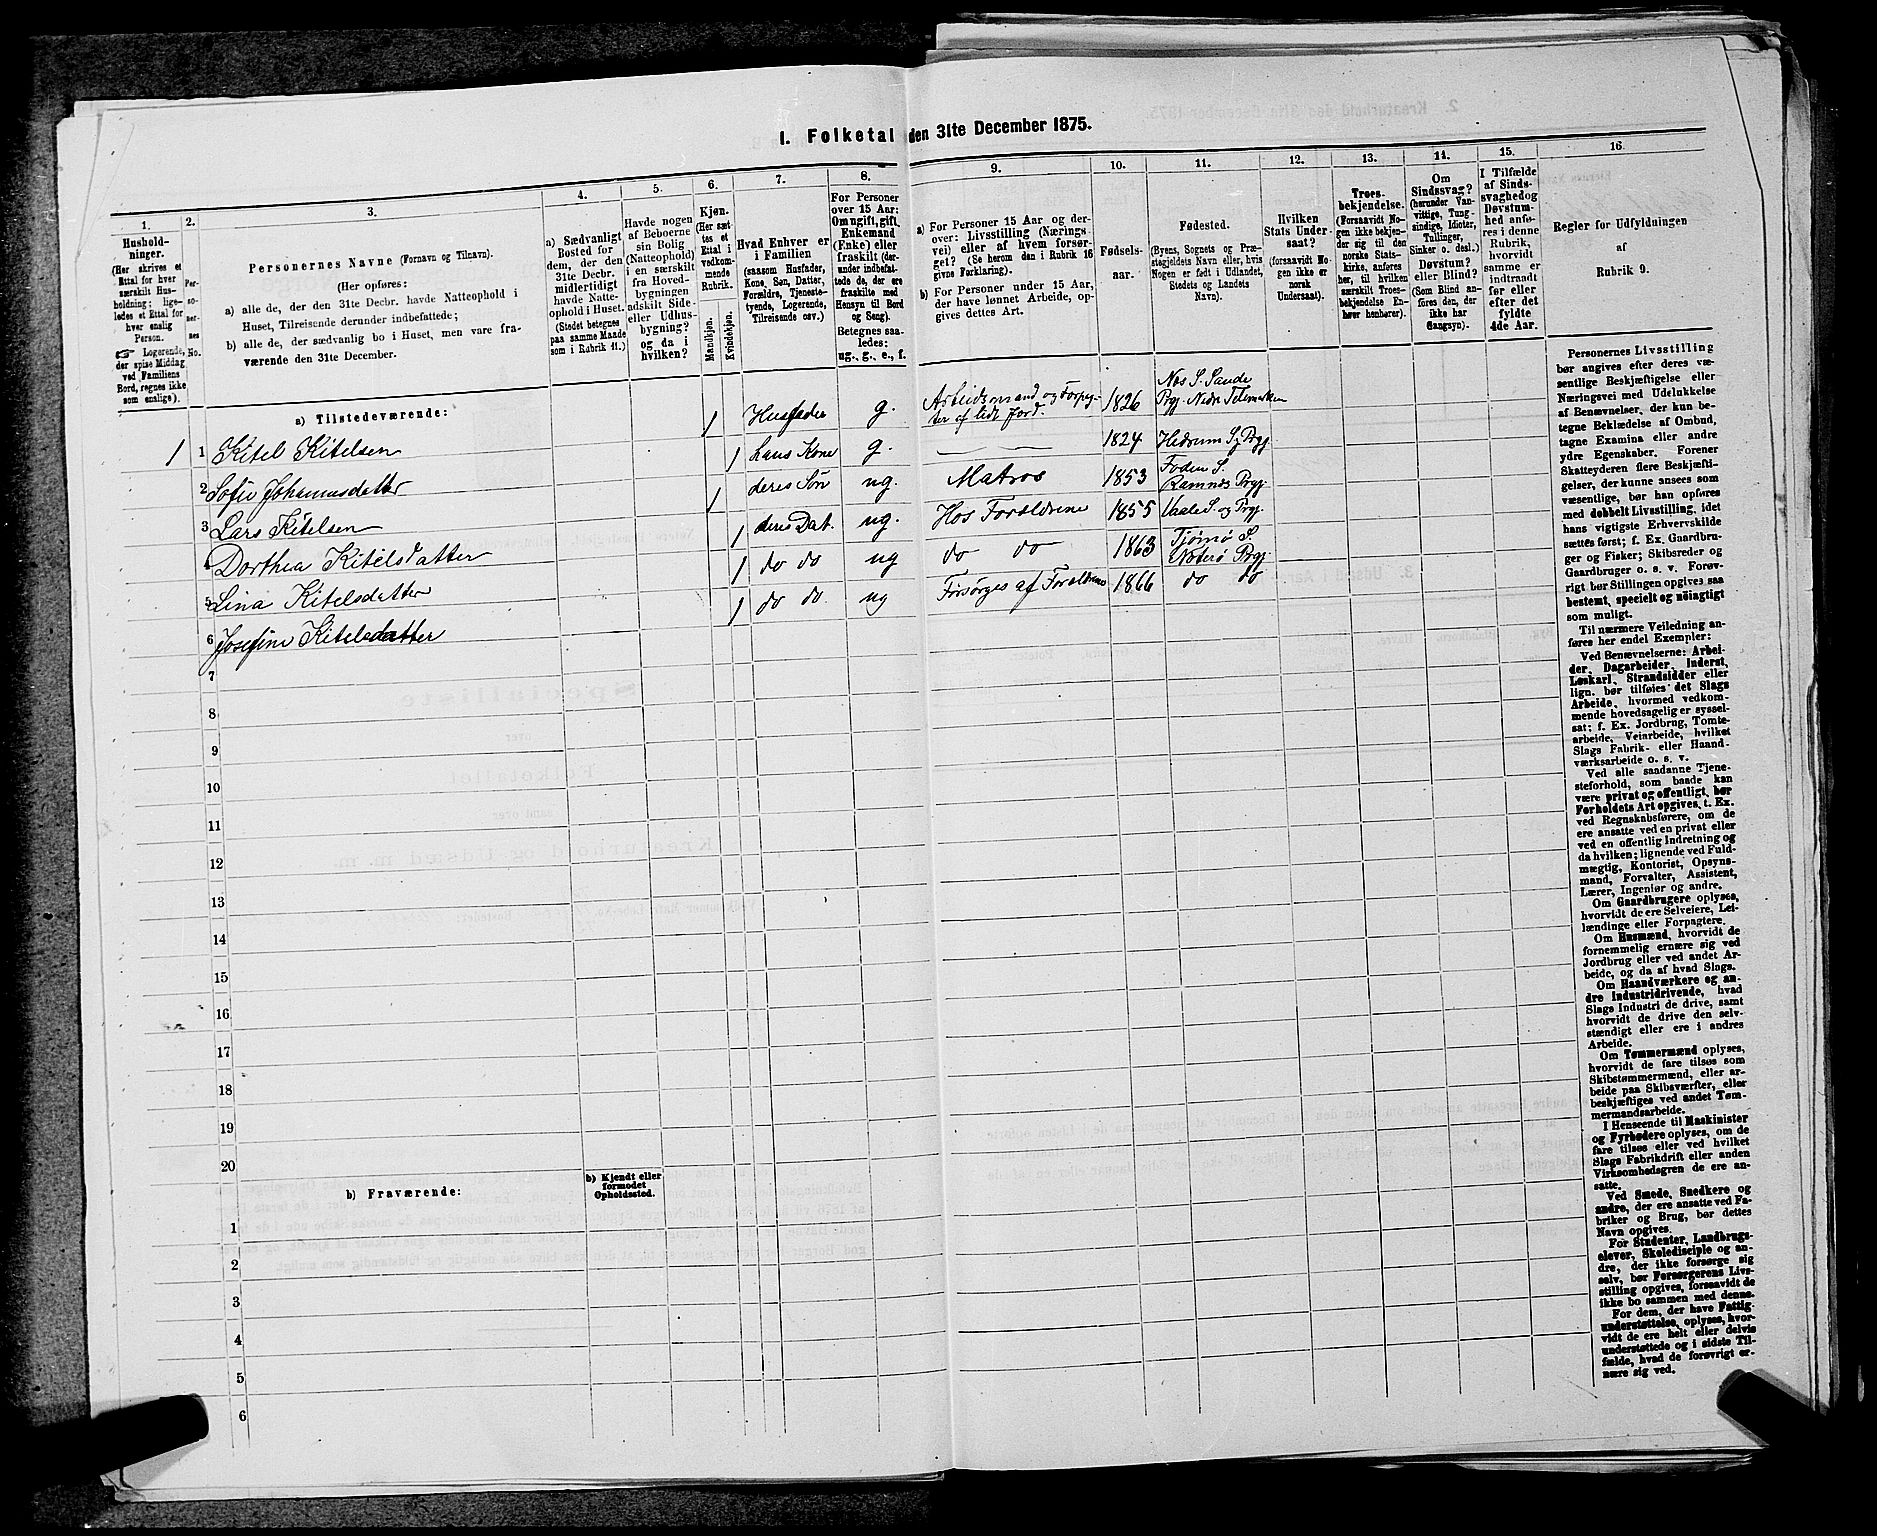 I. Folketal den 31te December 1875.
1. 2. 3. 4. 5. 6. 7. 8. 9. 10. 11. 12. 13. 14. 15. 16.
Hushold-
ninger.
(Her skrives et
Ettal for hver
særskilt Hus-
holdning; lige-
ledes et Ettal for
hver enslig
Person.
☞ Logerende,
der spise Middag
ved Familiens
Bord, regnes ikke
som enslige).
Per-
so-
ner-
nes
No.
Personernes Navne (Fornavn og Tilnavn).
(Her opføres:
a) alle de, der den 31te Decbr. havde Natteophold i
Huset, Tilreisende derunder indbefattede;
b) alle de, der sædvanlig bo i Huset, men vare fra-
værende den 31te December.
a) Sædvanligt
Bosted for
dem, der den
31te Decbr.
midlertidigt
havde Natte-
ophold i Huset.
(Stedet betegnes
paa samme Maade
som i Rubrik 11.)
Havde nogen
af Beboerne
sin Bolig
(Natteophold)
i en særskilt
fra Hoved-
bygningen
adskilt Side-
eller Udhus-
bygning?
og da i
hvilken?
Kjøn.
(Her sæt-
tes et
Ettal i
vedkom-
mende
Rubrik.
Mandkjøn.
Kvindekjøn.
Hvad Enhver er
i Familien
(saasom Husfader,
Kone, Søn, Datter,
Forældre, Tjeneste-
tyende, Logerende,
Tilreisende osv.)
For Personer
over 15 Aar:
Om ugift, gift,
Enkemand
(Enke) eller
fraskilt (der-
under indbefat-
tede de, der ere
fraskilte med
Hensyn til Bord
og Seng).
Betegnes saa-
ledes:
ug., g., e., f.
a) For Personer 15 Aar og der-
over: Livsstilling (Nærings-
vei) eller af hvem forsør-
get? (Se herom den i Rubrik 16
givne Forklaring).
b) For Personer under 15 Aar,
der have lønnet Arbeide, op-
gives dettes Art.
Fødsels-
aar.
Fødested.
(Byens, Sognets og Præ-
stegjeldets Navn eller, hvis
Nogen er født i Udlandet,
Stedets og Landets
Navn).
Hvilken
Stats Under-
saat?
(forsaavidt No-
gen ikke er
norsk
Undersaat).
Troes-
bekjendelse.
(Forsaavidt No-
gen ikke bekjen-
der sig til den
norske Stats-
kirke, anføres
her, til hvilken
særskilt Troes-
bekjendelse En-
hver henhører).
Om
Sindssvag?
(herunder Van-
vittige, Tung-
sindige, Idioter,
Tullinger,
Sinker o. desl.)
Døvstum?
eller Blind?
(Som Blind an-
føres den, der
ikke har
Gangsyn).
I Tilfælde
af Sinds-
svaghed og
Døvstum-
hed anfø-
res i denne
Rubrik,
hvorvidt
samme er
indtraadt
før eller
efter det
fyldte
4de Aar.
Regler for Udfyldningen
af
Rubrik 9.
a) Tilstedeværende:
1 1 Kitel Kitelsen 1 Husfader g. Arbeidsmand og Forpag-
ter af lidt Jord. 1826 Næs S. Saude
Prgj. Nedre Telemarken
2 Sofie Johannesdatter 1 hans Kone g. 1824 Hedrum S. Prgj.
3 Lars Kitelsen 1 deres Søn ug. Matros 1853 Foden S.
Ramnes Prgj.
4 Dorthea Kitelsdatter 1 deres Dat. ug. Hos Foreldrene 1855 Vaale S. og Prgj.
5 Lina Kitelsdatter 1 do do ug do do 1863 Tjømø S.
Nøterø Prgj.
6 Josefine Kitelsdatter 1 do do. ug Forsørges af Foreldrene 1866 do do
7
8
9
10
11
12
13
14
15
16
17
18
19
20
b) Fraværende:
b) Kjendt eller
formodet
Opholdssted.
1
2
3
4
5
6
Personernes Livsstilling
bør angives efter deres væ-
sentlige Beskjæftigelse eller
Næringsvei med Udelukkelse
af Benævnelser, der kun be-
tegne Beklædelse af Ombud,
tagne Examina eller andre
ydre Egenskaber. Forener
Skatteyderen flere Beskjæfti-
gelser, der kunne ansees som
væsentlige, bør han opføres
med dobbelt Livsstilling, idet
hans vigtigste Erhvervskilde
sættes først; f. Ex. Gaardbru-
ger og Fisker; Skibsreder og
Gaardbruger o. s. v. Forøv-
rigt bør Stillingen opgives saa
bestemt, specielt og nöiagtigt
som muligt.
Til nærmere Veiledning an-
føres her endel Exempler:
Ved Benævnelserne: Arbei-
der, Dagarbeider, Inderst,
Løskarl, Strandsidder eller
lign. bør tilføies det Slags
Arbeide, hvormed vedkom-
mende hovedsagelig er syssel-
sat; f. Ex. Jordbrug, Tomte-
arbeide, Veiarbeide, hvilket
Slags Fabrik- eller Haand-
værksarbeide o. s. v.
Ved alle saadanne Tjene-
steforhold, som baade kan
være privat og offentligt, bør
Forholdets Art opgives, t. Ex.
ved Regnskabsførere, om de
ere ansatte ved en privat eller
ved en offentlig Indretning og
da hvilken; lignende ved Fuld-
mægtig, Kontorist, Opsyns-
mand, Forvalter, Assistent,
Lærer, Ingeniør og andre.
Om Gaardbrugere oplyses,
hvorvidt de ere Selveiere, Lei-
lændinge eller Forpagtere.
Om Husmænd, hvorvidt de
fornemmelig ernære sig ved
Jordbrug eller ved andet Ar-
beide, og da af hvad Slags.
Om Haandværkere og an-
dre Industridrivende, hvad
Slags Industri de drive, samt
hvorvidt de drive den selv-
stændigt eller ere i andres
Arbeide.
Om Tømmermænd oplyses,
hvorvidt de fare tilsøs som
Skibstømmermænd, eller ar-
beide paa Skibsværfter, eller
beskjæftiges ved andet Tøm-
mermandsarbeide.
I Henseende til Maskinister
og Fyrbødere oplyses, om de
fare tilsøs eller ved hvilket
Slags Fabrikdrift eller anden
Virksomhedsgren de ere an-
satte.
Ved Smede, Snedkere og
andre, der ere ansatte ved Fa-
briker og Brug, bør dettes
Navn opgives.
For Studenter, Landbrugs-
elever, Skoledisciple og an-
dre, der ikke forsørge sig
selv, bør Forsørgerens Livs-
stilling opgives, forsaavidt de
ikke bo sammen med denne.
For dem, der have Fattig-
understøttelse, oplyses, hvor-
vidt de ere helt eller delvis
understøttede og i sidste Til-
fælde, hvad de forøvrigt er-
nære sig ved.